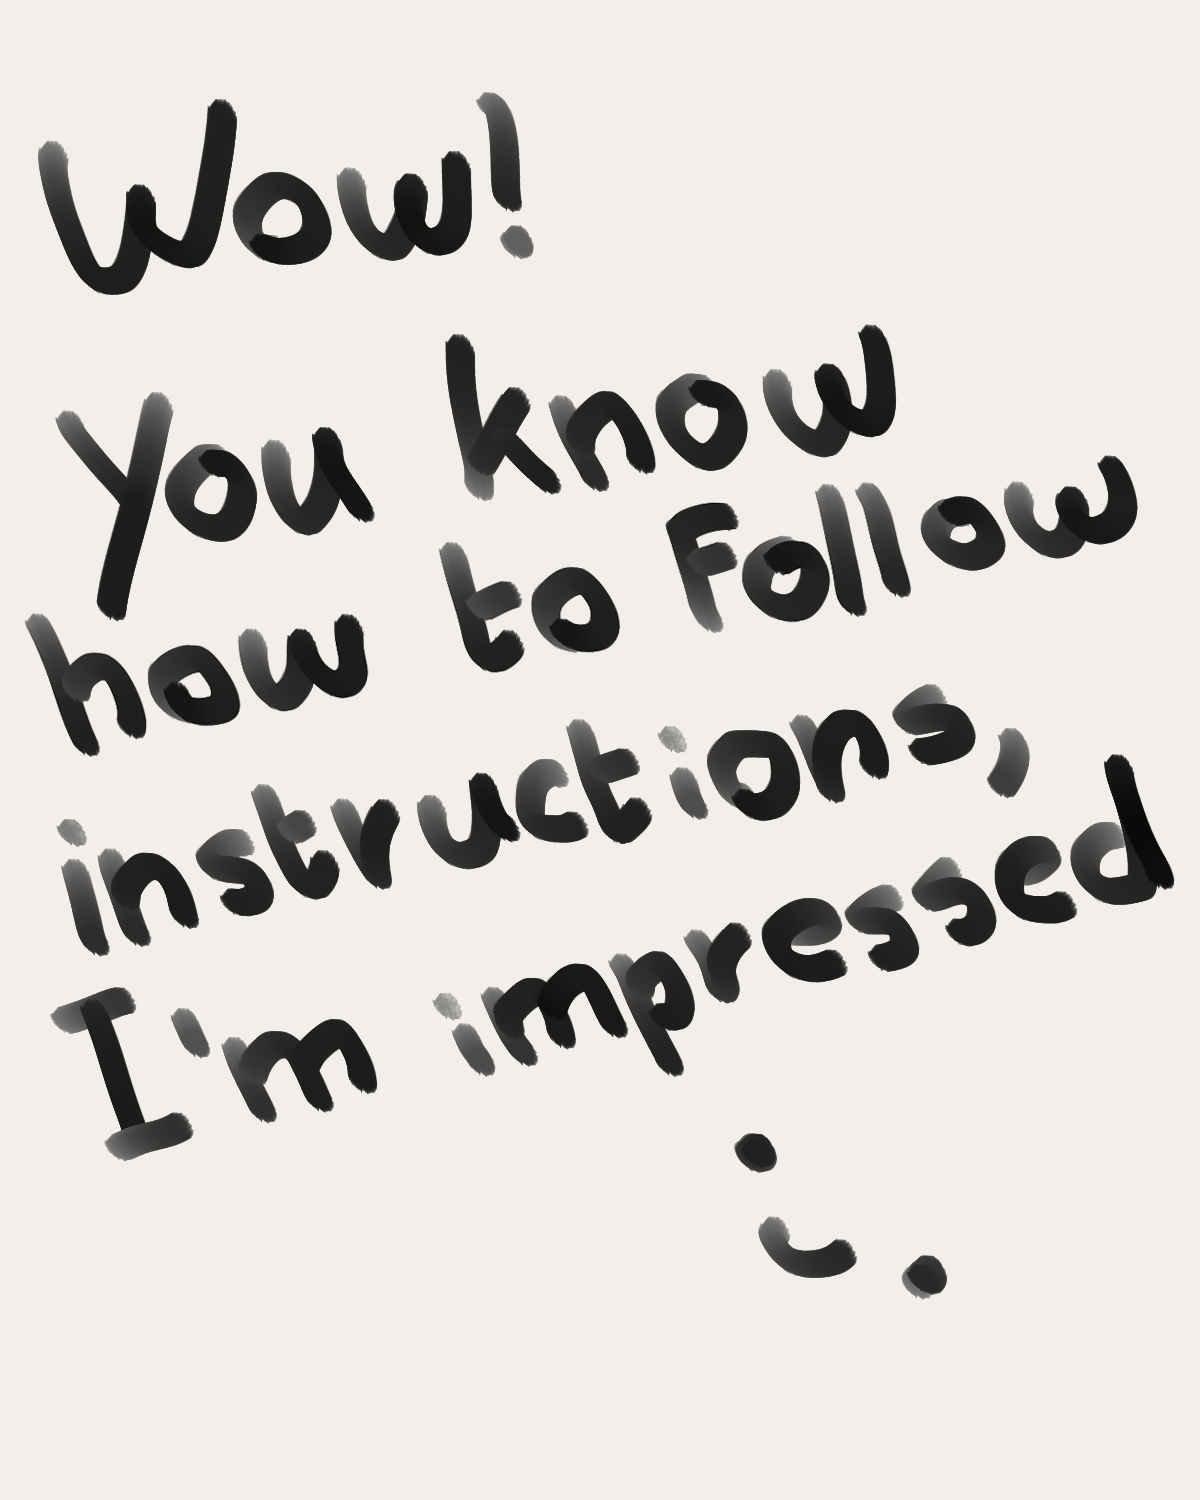 Wow!
You know
how to Follow
instructions,
I'm impressed